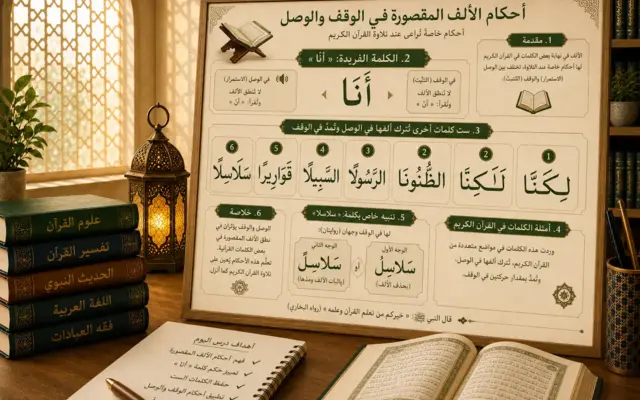 أحكام الألف المقصورة في الوقف والوصل
أحكام خاصة تُراعى عند تلاوة القرآن الكريم
1. مقدمة
الألف في نهاية بعض الكلمات في القرآن الكريم
لها أحكام خاصة عند التلاوة، تختلف بين الوصل
(الاستمرار) والوقف (التثبت).
2. الكلمة الفريدة: « أَنَا »
في الوقف (التثبُّت)
لا تنطق الألف
وتُقرأ: « أنَ »
أَنَا
في الوصل (الاستمرار)
لا تنطق الألف
وتُقرأ: « أنَ »
3. ست كلمات أخرى تُترك ألفها في الوصل وتُمدّ في الوقف
1
لكِنَّا
2
لَكِنَّا
2
الظُّنُونَا
3
الرَّسُولَا
4
السَّبِيلَا
5
قَوَارِيرَا
6
سَلَاسِلَا
4. أمثلة الكلمات في القرآن الكريم
وردت هذه الكلمات في مواضع متعددة من
القرآن الكريم، تُترك ألفها في الوصل،
وتُمدّ بمقدار حركتين في الوقف.
5. تنبيه خاص بكلمة: «سلاسلا»
لها في الوقف وجهان (روايتان):
الوجه الأول
سَلَاسِلُ
(بحذف الألف)
الوجه الثاني
سَلَاسِلً
(بإثبات الألف ومدها)
6. خلاصة
الوصل والوقف يؤثران في
نطق الألف المقصورة في
بعض الكلمات القرآنية.
تعلُّم هذه الأحكام يُعين على
تلاوة القرآن الكريم كما أُنزل.
قال النبي ﷺ: « خيركم من تعلم القرآن وعلمه » (رواه البخاري)
علوم القرآن
تفسير القرآن
الحديث النبوي
اللغة العربية
فقه العبادات
أهداف درس اليوم
فهم أحكام الألف المقصورة
تمييز حكم كلمة « أنا »
حفظ الكلمات الست
تطبيق أحكام الوقف والوصل